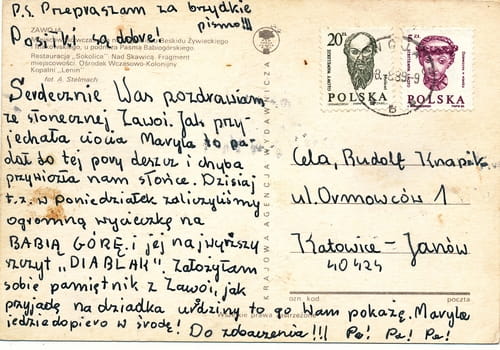 P.S. Przepraszam za brzydkie
pismo!!!
Posiłki są dobre!
ZAWOJA
Beskidu Żywieckiego
u podnóża Pasma Babiogórskiego.
Restauracja „Sokolica” Nad Skawicą. Fragment
miejscowości. Ośrodek Wczasowo-Kolonijny
Kopalni „Lenin”
fot. A. Stelmach
Serdecznie Was pozdrawiam
ze słonecznej Zawoi. Jak przy-
jechała ciocia Maryla to pa-
dał do tej pory deszcz i chyba
przywiozła nam słońce. Dzisiaj
t.z. w poniedziałek zaliczyliśmy
ogromną wycieczkę na
BABIĄ GÓRĘ i jej najwyższy
szczyt „DIABLAK”. Założyłam
sobie pamiętnik z Zawoi, jak
przyjadę na dziadka urodziny to go Wam pokażę. Maryla
jedzie dopiero w środę! Do zobaczenia!!! Pa! Pa! Pa!
KRAJOWA AGENCJA WYDAWNICZA
20 zł
POLSKA
5 zł
POLSKA
Cela, Rudolf Knapik
ul. Ormowców 1
Katowice - Janów
40424
ozn kod
poczta